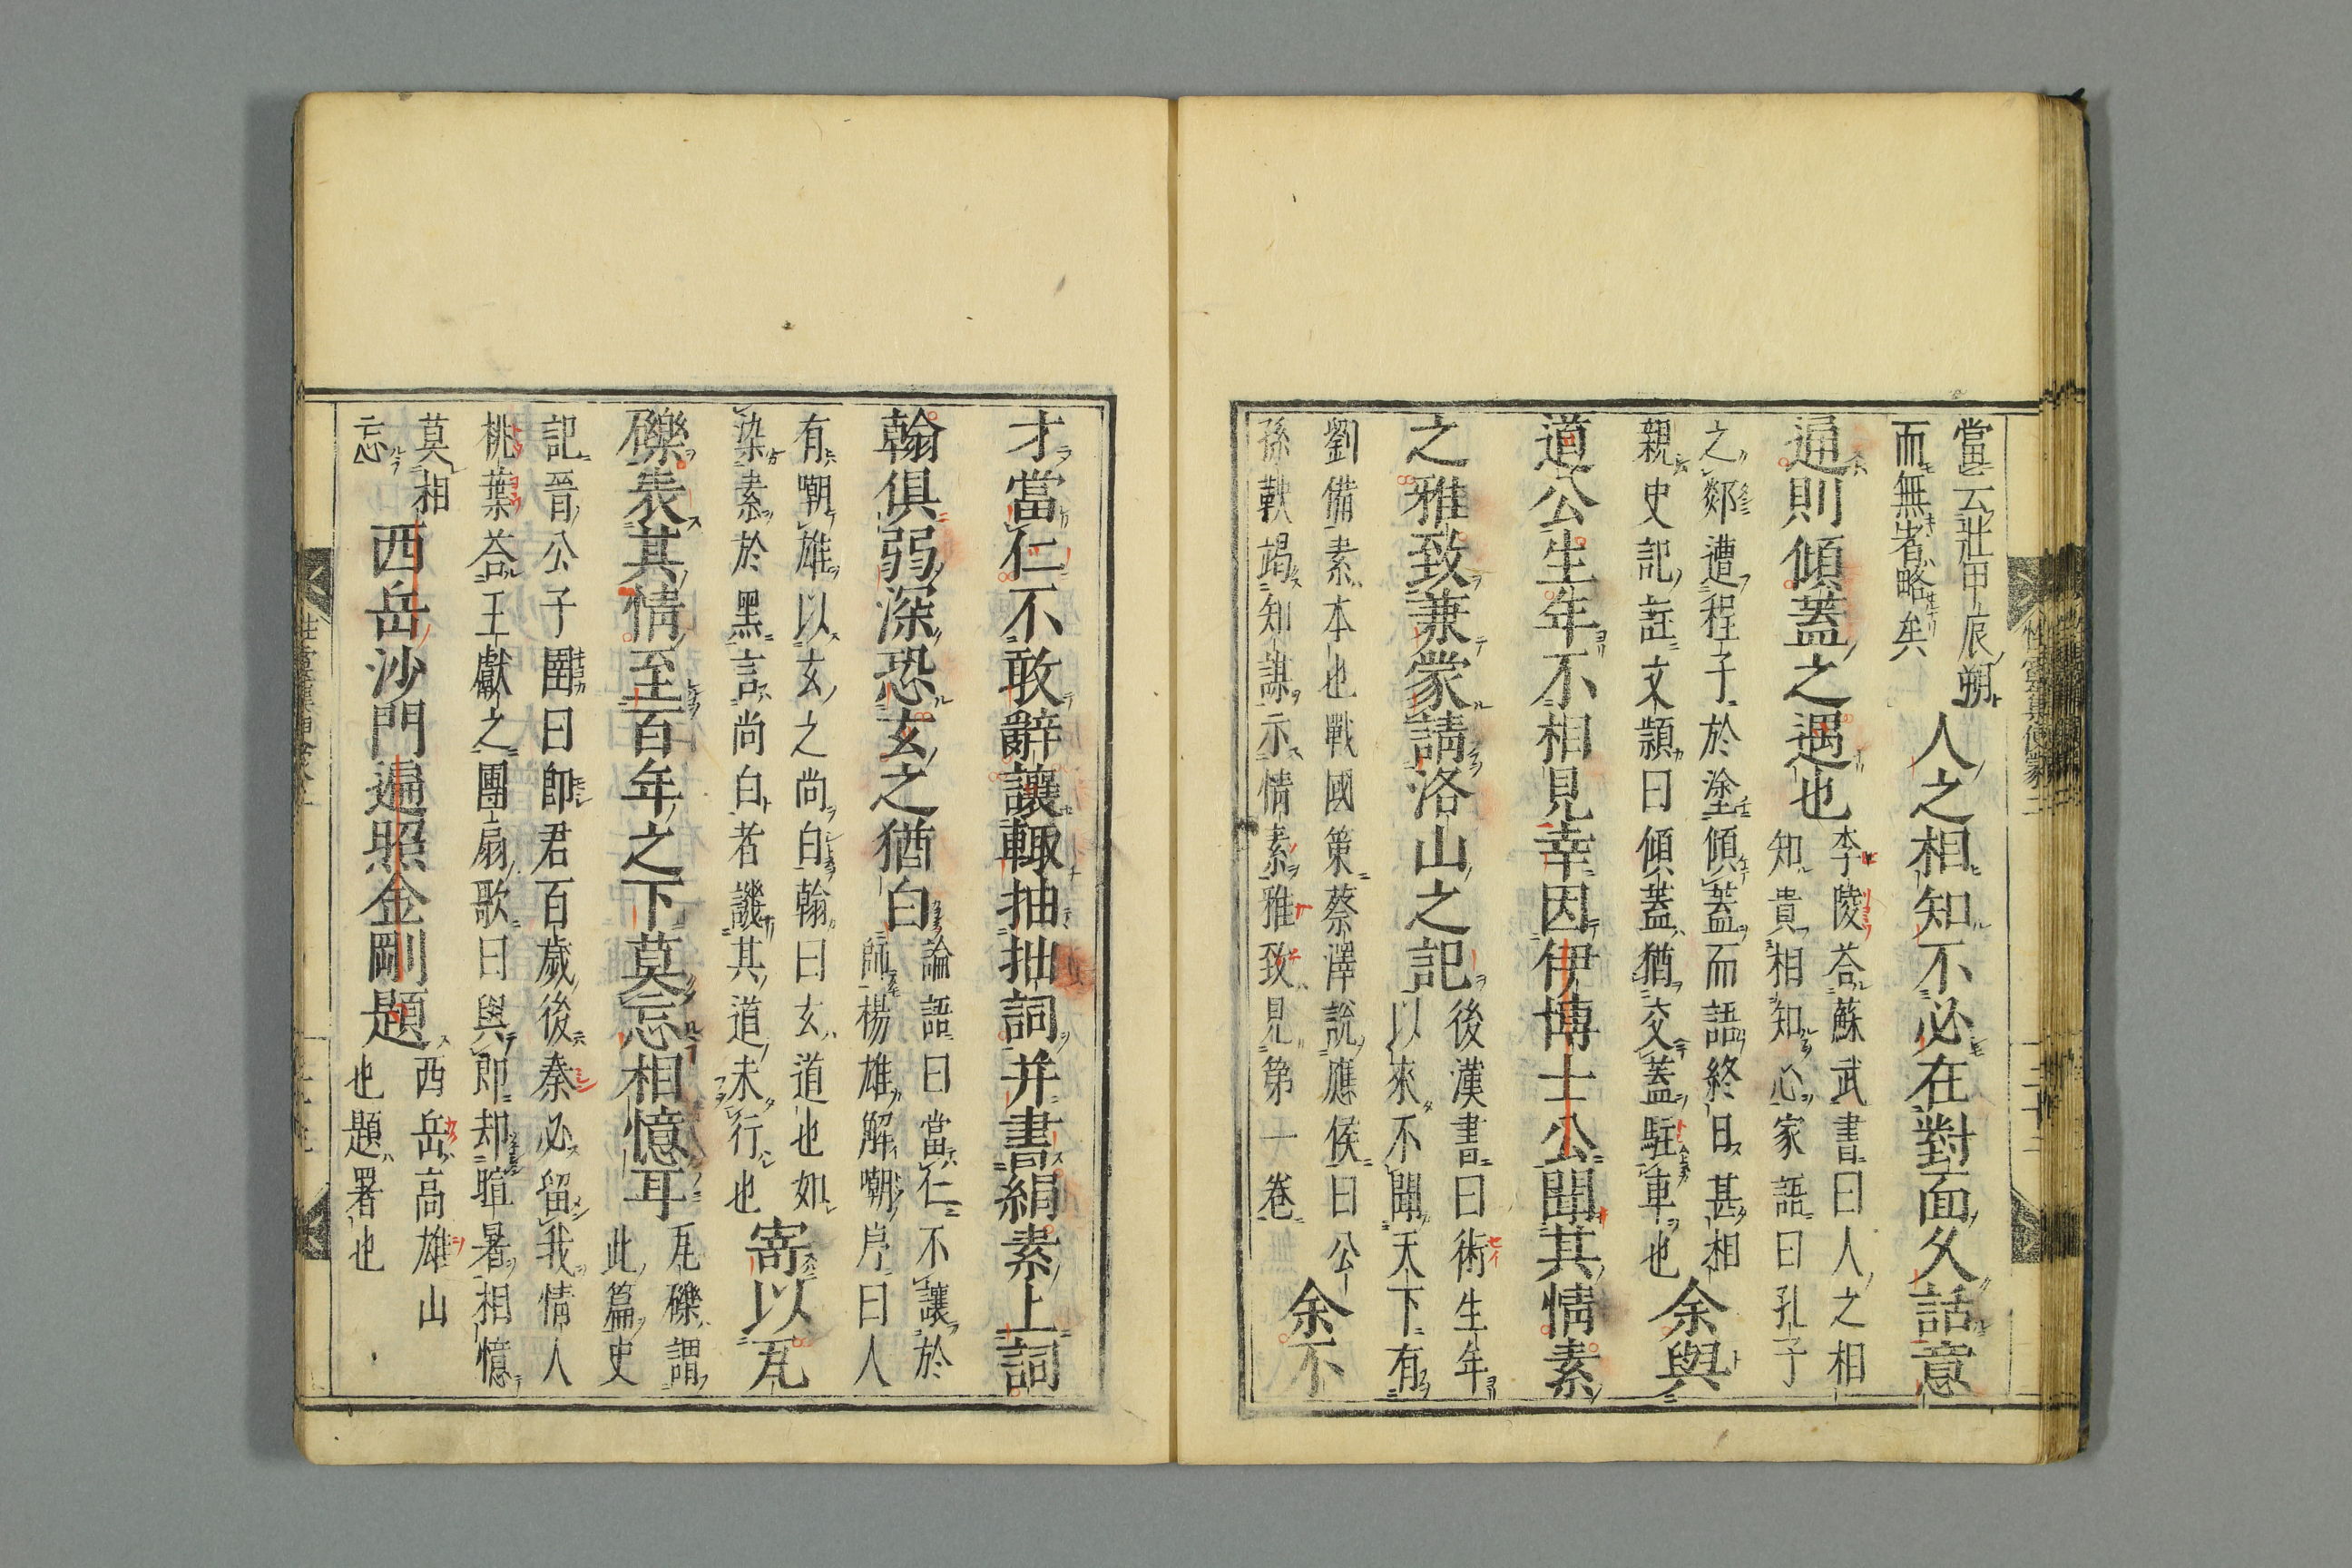 當云壯甲辰朔
而無者略矣
人之相知不必在對面久話意
通則傾蓋之遇也
李陵荅蘇武書曰人之相
知貴相知心家語曰孔子
之郯遭程子於塗傾蓋而語終日甚相
親史記註文穎曰傾蓋猶交蓋駐車也
余與
道公生年不相見幸因伊博士公聞其情素
之雅致兼蒙請洛山之記
後漢書曰術生年
以來不聞天下有
劉備素本也戰國策蔡澤說應侯曰公
孫鞅竭知謀示情素雅致見第一卷
余不
才當仁不敢辭讓輙抽拙詞并書絹素上詞
翰俱弱深恐玄之猶白
論語曰當仁不讓於
師楊雄解嘲序曰人
有嘲雄以玄之尚白翰曰玄道也如
染素於黑言尚白者譏其道未行也
寄以瓦
礫表其情至百年之下莫忘相憶耳
瓦礫謂
此篇史
記晉公子圉曰師君百歲後秦必留我情人
桃葉荅王獻之團扇歌曰與郎却暄暑相憶
莫相
忘
西岳沙門遍照金剛題
西岳高雄山
也題署也